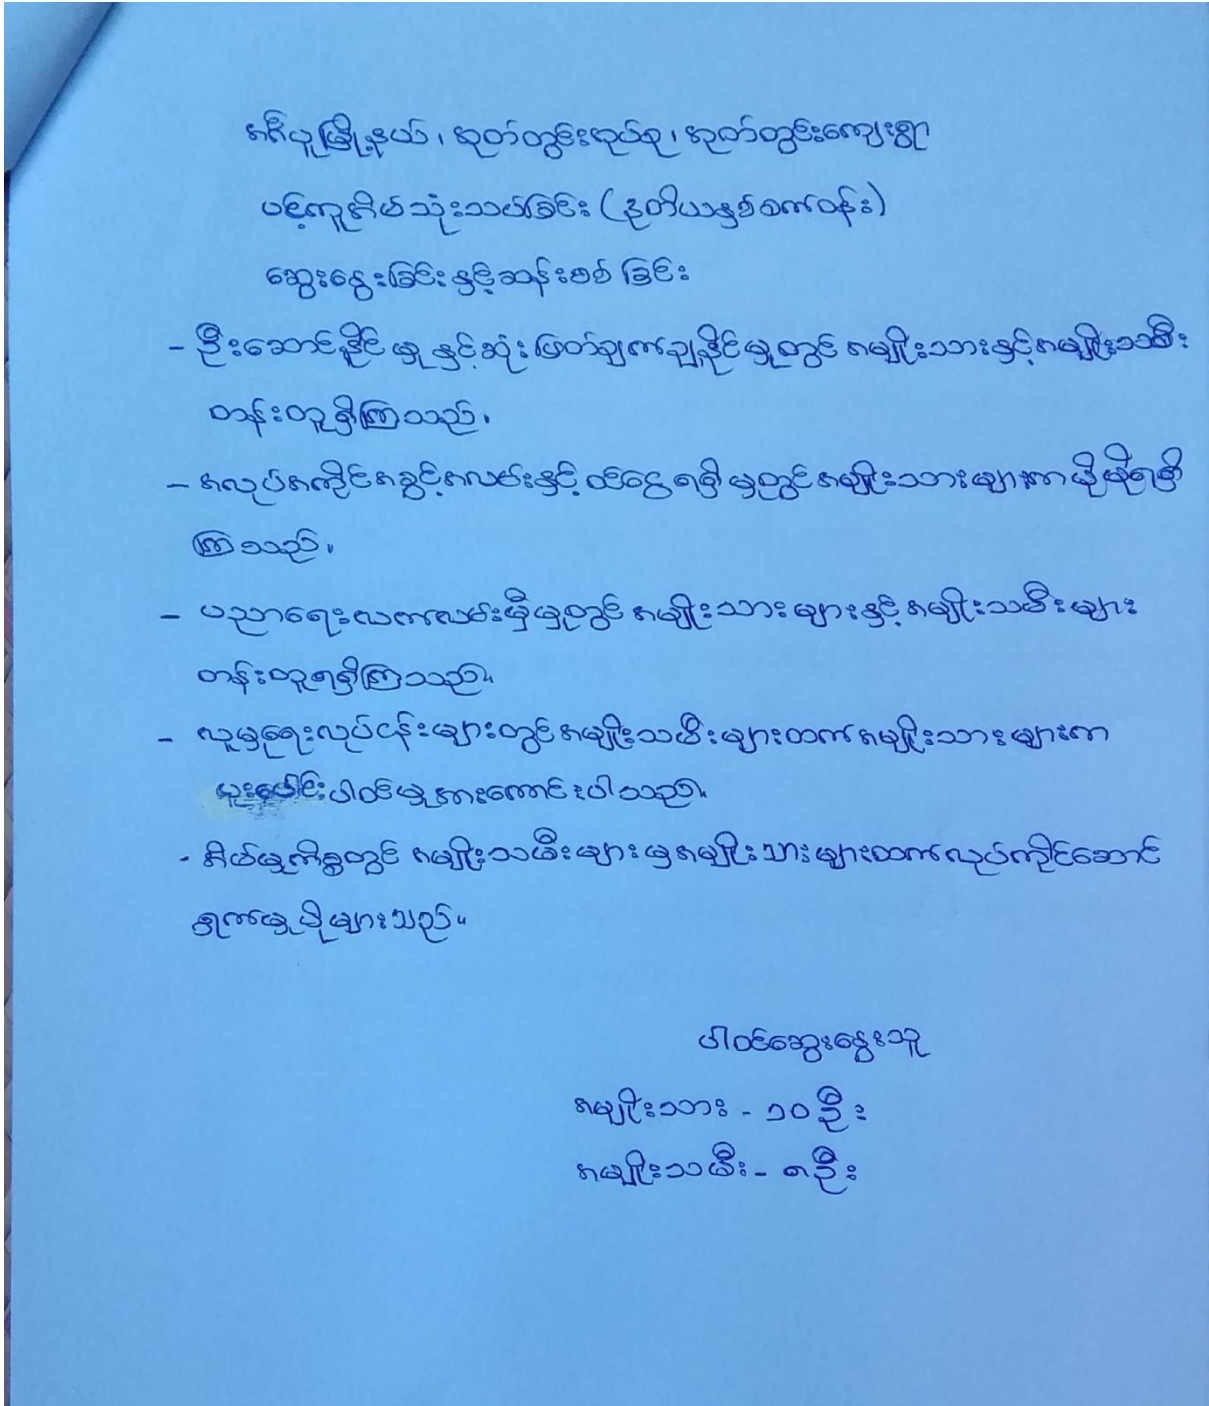 အင်္ဂပူမြို့နယ်၊ အုတ်တွင်းအုပ်စု၊ အုတ်တွင်းကျေးရွာ
ပင့်ကူအိမ်သုံးသပ်ခြင်း (ဒုတိယနှစ်စက်ဝန်း)
ဆွေးနွေးခြင်းနှင့်ဆန်းစစ်ခြင်း
- ဦးဆောင်နိုင်မှုနှင့်ဆုံးဖြတ်ချက်ချနိုင်မှုတွင် အမျိုးသားနှင့်အမျိုးသမီး
တန်းတူရှိကြသည်.
- အလုပ်အကိုင်အခွင့်အလမ်းနှင့်ဝင်ငွေရရှိမှုတွင်အမျိုးသားများကပိုမိုရရှိ
ကြသည်.
- ပညာရေးလက်လမ်းမှီမှုတွင် အမျိုးသားများနှင့်အမျိုးသမီးများ
တန်းတူရရှိကြသည်။
- လူမှုရေးလုပ်ငန်းများတွင်အမျိုးသမီးများထက်အမျိုးသားများက
ပူးပေါင်းပါဝင်မှုအားကောင်းပါသည်။
- အိမ်မှုကိစ္စတွင် အမျိုးသမီးများမှအမျိုးသားများထက်လုပ်ကိုင်ဆောင်
ရွက်မှုပိုများသည်။
ပါဝင်ဆွေးနွေးသူ
အမျိုးသား - ၁၀ဦး
အမျိုးသမီး - ၈ဦး